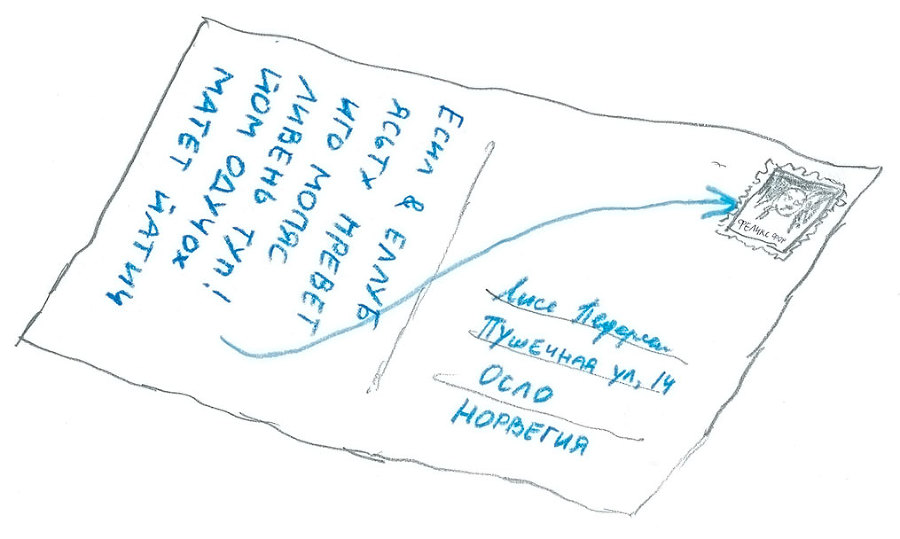 Есил & еллуб
ясьту нревет
иго мопяс
ливень туп!
йом одучох
матет йатич
ФЕЛИКС ФОР
Лисе Педерсен
Пушечная ул, 14
Осло
Норвегия